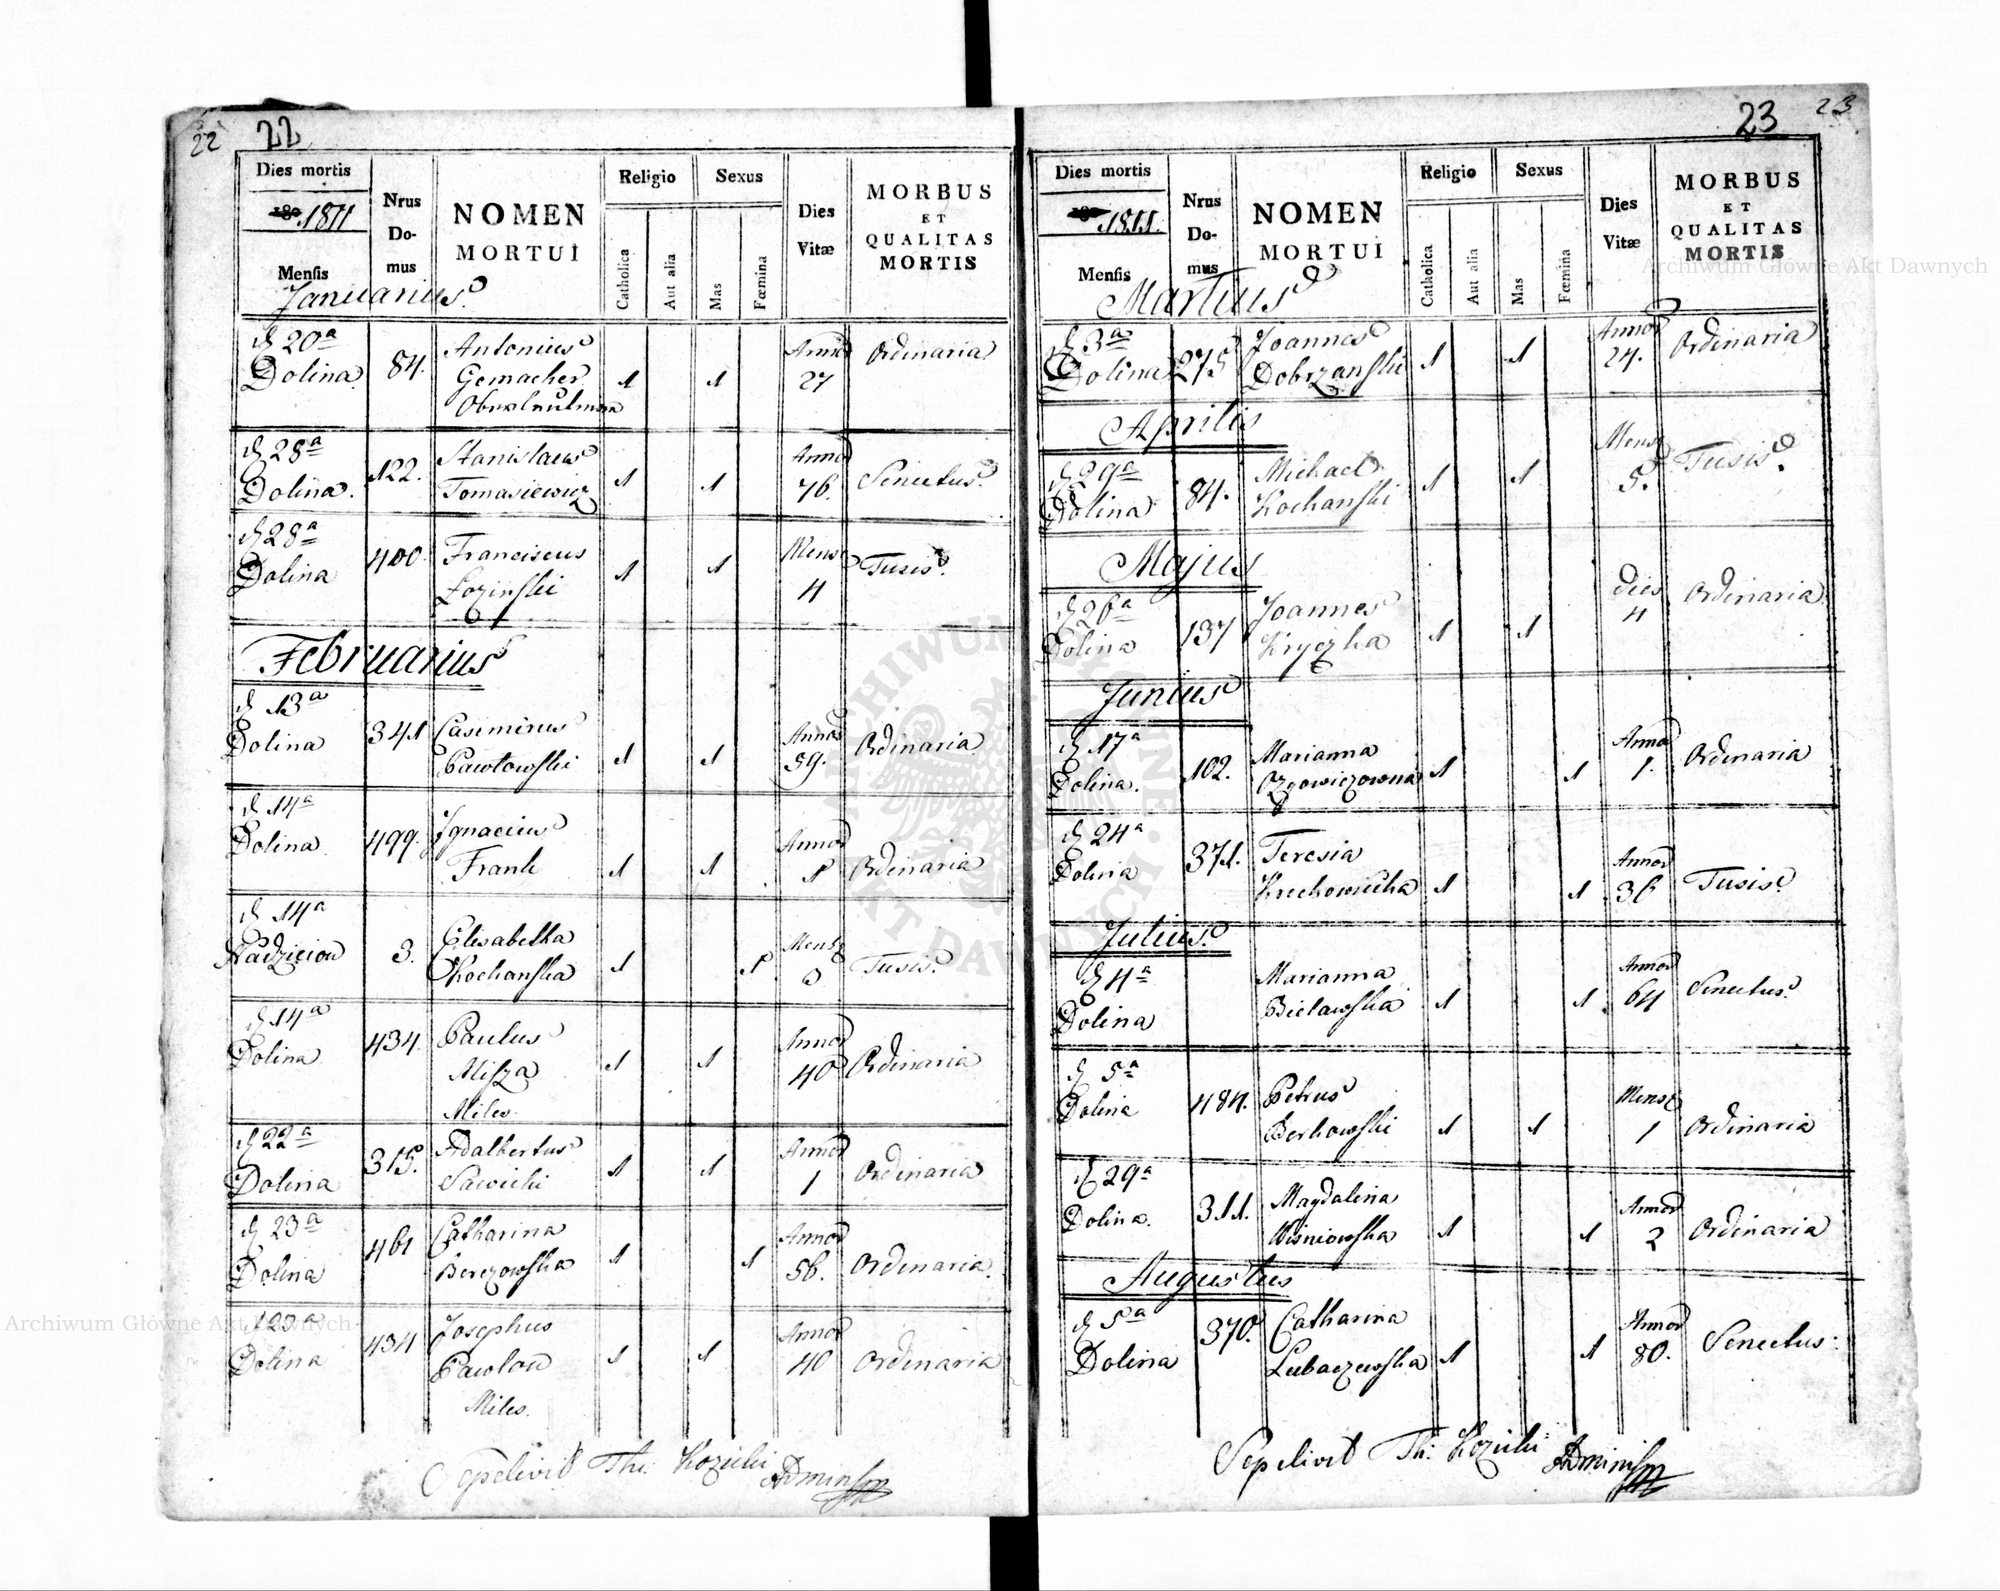 22 22
Dies mortis
1811
Mensis
Nrus Do- mus
NOMEN MORTUI
Religio
Catholica
Aut alia
Sexus
Mas
Fœmina
Dies Vitæ
MORBUS ET QUALITAS MORTIS
Januarius
d 20a Dolina 84. Antonius Gemacher 1 1 Annor 27 Ordinaria
d 28a Dolina. 122. Stanislaus Tomasiewicz 1 1 Annor 76. Senectus
d 28a Dolina 400 Franciscus Łozinski 1 1 Mens 4 Tusis.
Februarius
d 13a Dolina 341 Casimirus Pawłowski 1 1 Annor 59. Ordinaria
d 14a Dolina 499. Ignacius Frank 1 1 Annor 1 Ordinaria
d 14a 3. Elisabetha Kochanska 1 1 Mens 3 Tusis.
d 14a Dolina 434. Paulus Misza Miles. 1 1 Annor 40 Ordinaria
d 22a Dolina 315. Adalbertus Sawicki 1 1 Annor 1 Ordinaria
d 23a Dolina 461 Catharina Berezowska 1 1 Annor 56. Ordinaria.
d 23a Dolina 434 Josephus Pawlow Miles. 1 1 Annor 40 Ordinaria
Sepelivit Th: Kozicki Adminis
23 23
Dies mortis
1811.
Mensis
Nrus Do- mus
NOMEN MORTUI
Religio
Catholica
Aut alia
Sexus
Mas
Fœmina
Dies Vitæ
MORBUS ET QUALITAS MORTIS
Martius
d 3a Dolina 275 Joannes Dobrzanski 1 1 Annor 24. Ordinaria
Aprilis
d 29a Dolina 84. Michael Kochanski 1 1 Mens 5. Tusis.
Majus
d 26a Dolina 137 Joannes Kryczka 1 1 dies 4 Ordinaria
Junius
d 17a Dolina. 102. Marianna 1 1 Annor 1. Ordinaria
d 24a Dolina 371. Teresia Krechowiecka 1 1 Annor 36 Tusis
Julius.
d 4a Dolina Marianna Bielawska 1 1 Annor 64 Senectus
d 5a Dolina 484. Petrus Berkowski 1 1 Mens 1 Ordinaria
d 29a Dolina. 311. Magdalina Wisniowska 1 1 Annor 2 Ordinaria
Augustus
d 5a Dolina 370. Catharina Lubaczewska 1 1 Annor 80. Senectus.
Sepelivit Th: Kozicki Adminis
Archiwum Główne Akt Dawnych
Archiwum Główne Akt Dawnych
ARCHIWUM GŁÓWNE AKT DAWNYCH